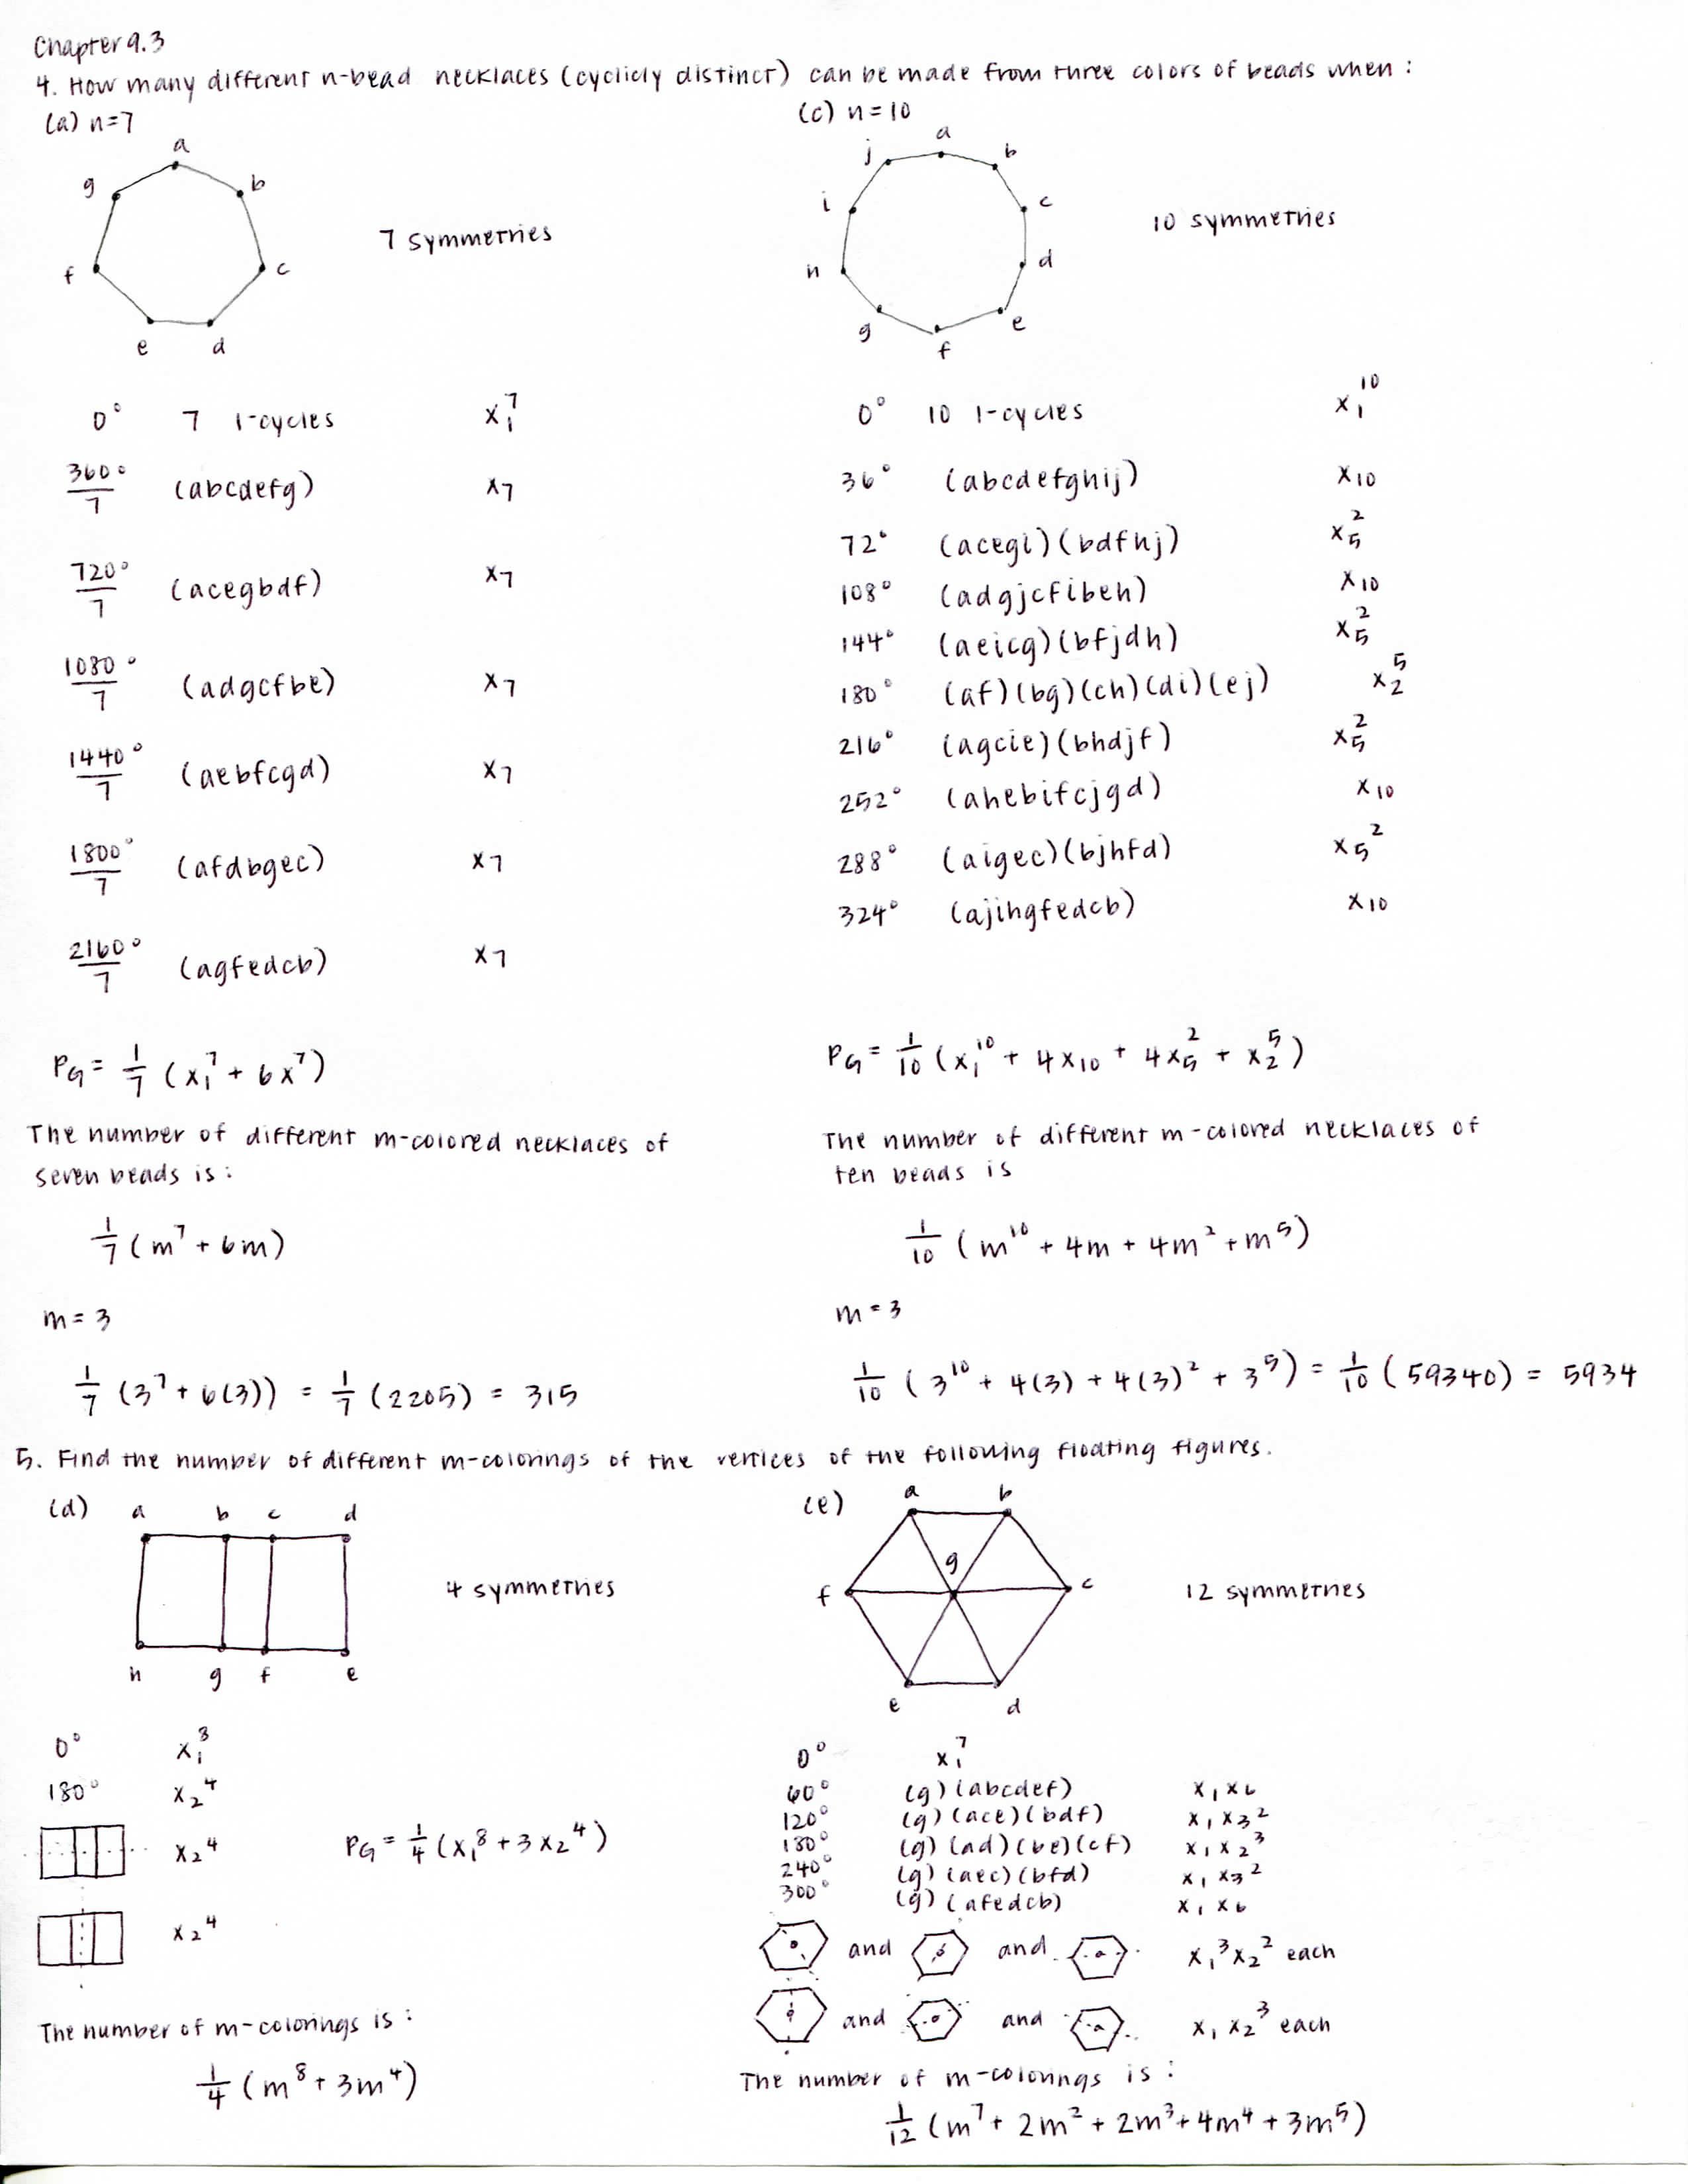 Chapter 9.3
4. How many different n-bead necklaces (cyclicly distinct) can be made from three colors of beads when :
(a) n=7
a
b
c
d
e
f
g
7 symmetries
0° 7 1-cycles x₁⁷
360°/7 (abcdefg) x₇
720°/7 (acegbdf) x₇
1080°/7 (adgcfbe) x₇
1440°/7 (aebfcgd) x₇
1800°/7 (afdbgec) x₇
2160°/7 (agfedcb) x₇
P_G = 1/7 (x₁⁷ + 6x⁷)
The number of different m-colored necklaces of
seven beads is :
1/7 (m⁷ + 6m)
m = 3
1/7 (3⁷ + 6(3)) = 1/7 (2205) = 315
(c) n=10
a
b
c
d
e
f
g
h
i
j
10 symmetries
0° 10 1-cycles x₁¹⁰
36° (abcdefghij) x₁₀
72° (acegi)(bdfhj) x₅²
108° (adgjcfibeh) x₁₀
144° (aeicg)(bfjdh) x₅²
180° (af)(bg)(ch)(di)(ej) x₂⁵
216° (agcie)(bhdjf) x₅²
252° (ahebifcjgd) x₁₀
288° (aigec)(bjhfd) x₅²
324° (ajihgfedcb) x₁₀
P_G = 1/10 (x₁¹⁰ + 4x₁₀ + 4x₅² + x₂⁵)
The number of different m-colored necklaces of
ten beads is
1/10 (m¹⁰ + 4m + 4m² + m⁵)
m = 3
1/10 (3¹⁰ + 4(3) + 4(3)² + 3⁵) = 1/10 (59340) = 5934
5. Find the number of different m-colorings of the vertices of the following floating figures.
(d)
a b c d
h g f e
4 symmetries
0° x₁⁸
180° x₂⁴
x₂⁴
P_G = 1/4 (x₁⁸ + 3x₂⁴)
x₂⁴
The number of m-colorings is :
1/4 (m⁸ + 3m⁴)
(e)
a b
g
f c
e d
12 symmetries
0° x₁⁷
60° (g)(abcdef) x₁x₆
120° (g)(ace)(bdf) x₁x₃²
180° (g)(ad)(be)(cf) x₁x₂³
240° (g)(aec)(bfd) x₁x₃²
300° (g)(afedcb) x₁x₆
and and x₁³x₂² each
and and x₁x₂³ each
The number of m-colorings is :
1/12 (m⁷ + 2m² + 2m³ + 4m⁴ + 3m⁵)